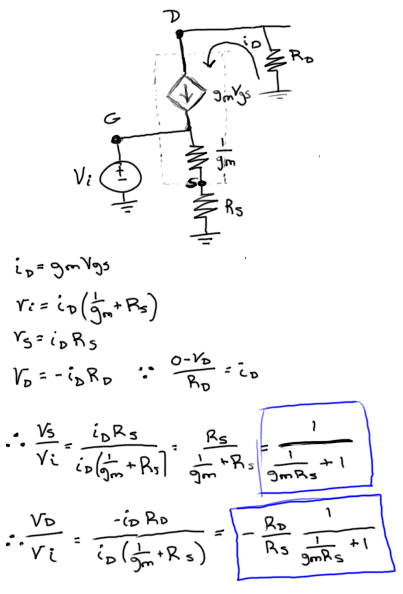 D
i_D
R_D
g_m V_gs
G
1/g_m
V_i
+
-
S
R_S
i_D = g_m V_gs
v_i = i_D (1/g_m + R_S)
v_S = i_D R_S
V_D = -i_D R_D ∵ (0-V_D)/R_D = i_D
∴ V_S/V_i = i_D R_S / i_D[1/g_m + R_S] = R_S / (1/g_m + R_S) = 1 / (1/(g_m R_S) + 1)
∴ V_D/V_i = -i_D R_D / i_D(1/g_m + R_S) = - R_D/R_S 1 / (1/(g_m R_S) + 1)